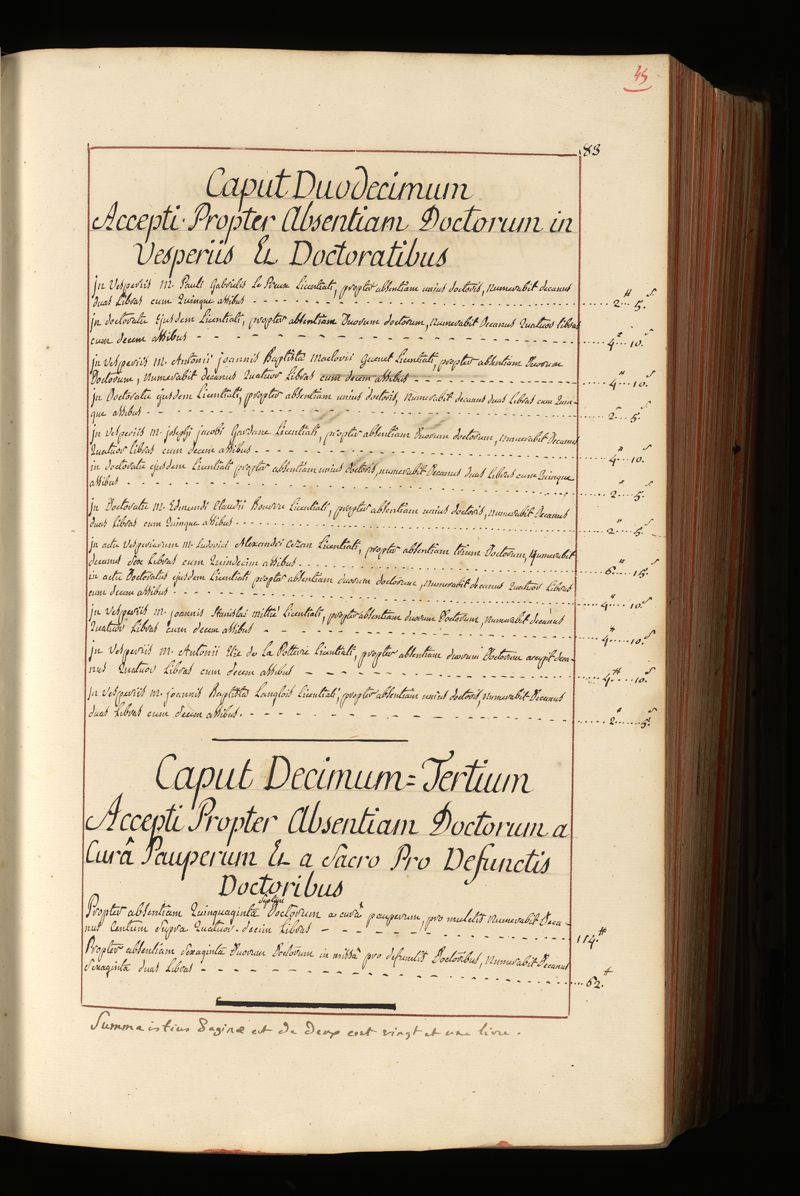 45
83
Caput Duodecimum
Accepti Propter Absentiam Doctorum in
Vesperiis Et Doctoratibus
jn Vesperiis M. Pauli Gabrielis Le Preux Licentiati, propter absentiam unius doctoris, Numerabit decanus
duas Libras cum Quinque assibus - - - 2# 5s
jn doctoratu Ejusdem Licentiati, propter absentiam Duorum doctorum, Numerabit Decanus Quatuor libras
cum decem assibus - - - 4# 10s
jn Vesperiis M. Antonii joannis Baptistæ Maclovii Guenet Licentiati, propter absentiam Duorum
Doctorum, Numerabit decanus Quatuor Libras cum decem assibus - - - 4# 10s
jn Doctoratu ejusdem Licentiati, propter absentiam unius doctoris, Numerabit decanus duas Libras cum Quin-
que assibus - - - 2# 5s
jn Vesperiis M. josephi jacobi Gardane Licentiati, propter absentiam Duorum doctorum, Numerabit Decanus
Quatuor libras cum decem assibus - - - 4# 10s
in doctoratu ejusdem Licentiati propter absentiam unius Doctoris, numerabit Decanus duas Libras cum Quinque
assibus - - - 2# 5s
jn Doctoratu M. Edmundi Claudii Bourru Licentiati, propter absentiam unius doctoris, Numerabit Decanus
duas Libras cum Quinque assibus - - - 2# 5s
jn actu Vesperiarum M. Ludovici Alexandri Cezan Licentiati, propter absentiam trium Doctorum, Numerabit
decanus sex Libras cum Quindecim assibus - - - 6# 15s
in actu Doctoratus ejusdem Licentiati propter absentiam duorum doctorum, Numerabit decanus Quatuor Libras
cum decem assibus - - - 4# 10s
jn Vesperiis M. joannis Stanislai Mittié Licentiati, propter absentiam duorum Doctorum, Numerabit decanus
Quatuor Libras cum decem assibus - - - 4# 10s
jn Vesperiis M. Antonii Elie de La Potterie Licentiati, propter absentiam duorum Doctorum accepit deca-
nus Quatuor Libras cum decem assibus - - - 4# 10s
jn Vesperiis M. joannis Baptistæ Langlois Licentiati, propter absentiam unius doctoris, Numerabit Decanus
duas Libras cum decem assibus - - - 2# 5s
Caput Decimum=Tertium
Accepti Propter Absentiam Doctorum a
Curâ Pauperum Et a Sacro Pro Defunctis
Doctoribus
Propter absentiam Quinquaginta septem Doctorum a curâ pauperum, pro mulctis Numerabit Deca-
nus Centum Supra Quatuor-decim Libras - - - 114#
Propter absentiam Sexaginta Duorum Doctorum in missâ pro defunctis Doctoribus, Numerabit Decanus
Sexaginta duas Libras - - - 62#
Summa istius Paginæ est de deux cent vingt et une livre.